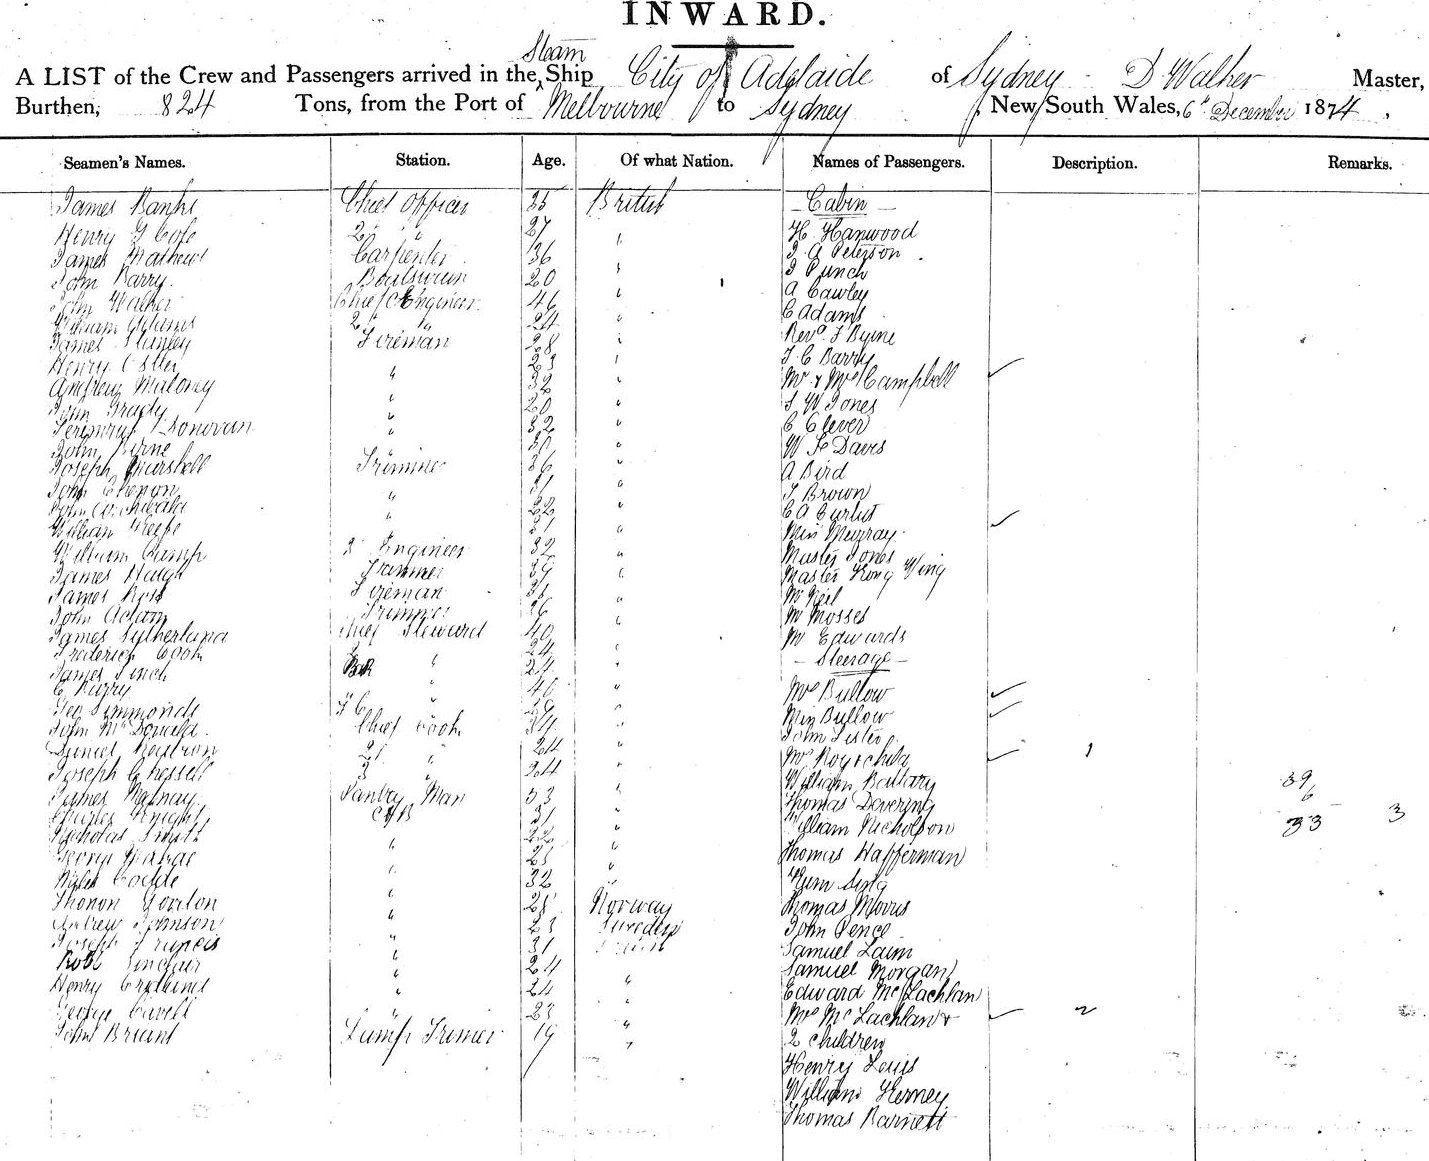 INWARD.
Steam
A LIST of the Crew and Passengers arrived in the Ship City of Adelaide of Sydney D Walker Master,
Burthen, 824 Tons, from the Port of Melbourne to Sydney, New South Wales, 6th December 1874,
Seamen's Names. Station. Age. Of what Nation. Names of Passengers. Description. Remarks.
James Banks Chief Officer 35 British
Henry G Cole 2 " " 27 "
James Mathews Carpenter 36 "
John Barry Boatswain 20 "
John Walker Chief Engineer 46 "
William Adams 2 " " 24 "
James Stanley Fireman 28 "
Henry 23 "
Andrew Maloney " 32 "
John Grady " 20 "
Donovan " 32 "
John "
Joseph Marshall Trimmer 36 "
John "
John Archibald " 22 "
William Keefe "
William Jump 3 Engineer 32 "
James Haigh Trimmer 39 "
James Ross Fireman "
John Adam Trimmer 36 "
James Sutherland Chief Steward 40 "
Frederick Cook 24 "
James Finch " 24 "
C Barry " 40 "
Geo Simmonds F C "
John McDonald Chief Cook 34 "
Daniel 2 " 24 "
Joseph Chessell 3 " 24 "
James Pantry Man 53 "
Charles Knight 31 "
Nicholas Smith " 22 "
George "
" 32 "
Gordon " 28 Norway
Andrew Johnson " 23 Sweden
Joseph Francis " 31
Robt Sinclair " 24 "
Henry " 24 "
George Cavell " 23 "
John Briant Lamp Trimer 19 "
Cabin
H Harwood
J A Peterson
J Punch
A Cawley
C Adams
Revd J Byrne
J C Barry
Mr & Mrs Campbell
S W Jones
C Clever
W F Davis
A Bird
J Brown
C A Curtis
Miss Murray
Master Jones
Master Kong Wing
Mr Neil
Mr Mosses
Mr Edwards
Steerage
Mrs Bullow
Miss Bullow
John Lister
Mrs 1
William 39
Thomas Devering 6
William Nicholson 33 3
Thomas Hafferman
Sing
Thomas Morris
John Pence
Samuel Laim
Samuel Morgan
Edward McLachlan
Mrs McLachlan & 2
2 children
Henry Louis
William
Thomas Barnett